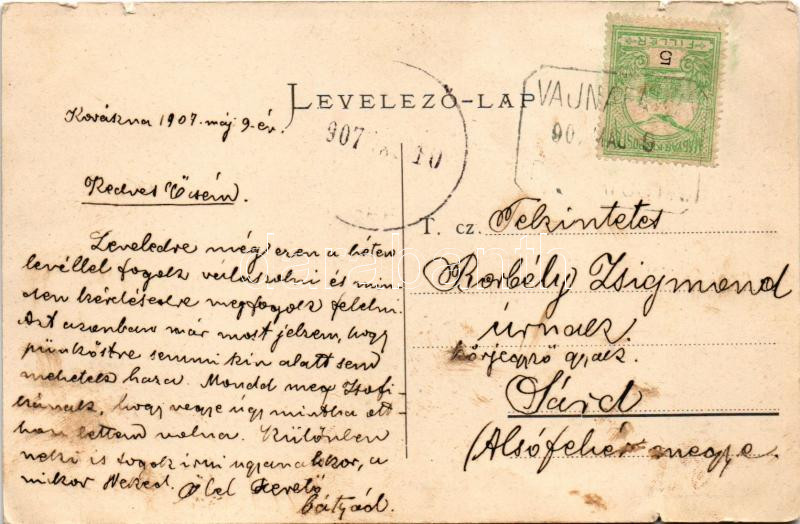 LEVELEZŐ-LAP
FILLÉR
5
VAJNA
90. MÁJ 9
907 10
Kovászna 1907. máj 9-én.
Kedves Öcsém.
Leveledre még ezen a héten
levéllel fogok válaszolni és min-
den kérdésedre megfogok felelni.
Azt azonban már most jelzem, hogy
pünköstre semmi kin alatt sem
mehetek haza. Mondd meg Zsofi-
kának, hogy vegye úgy mintha ott-
hon lettem volna. Különben
neki is fogok írni ugyanakkor, a
mikor Neked. Ölel szerető
bátyád.
T. cz. Tekintetes
Korbély Zsigmond
úrnak.
körjegyző gyak.
Sárd
(Alsófehér megye.
darabanth